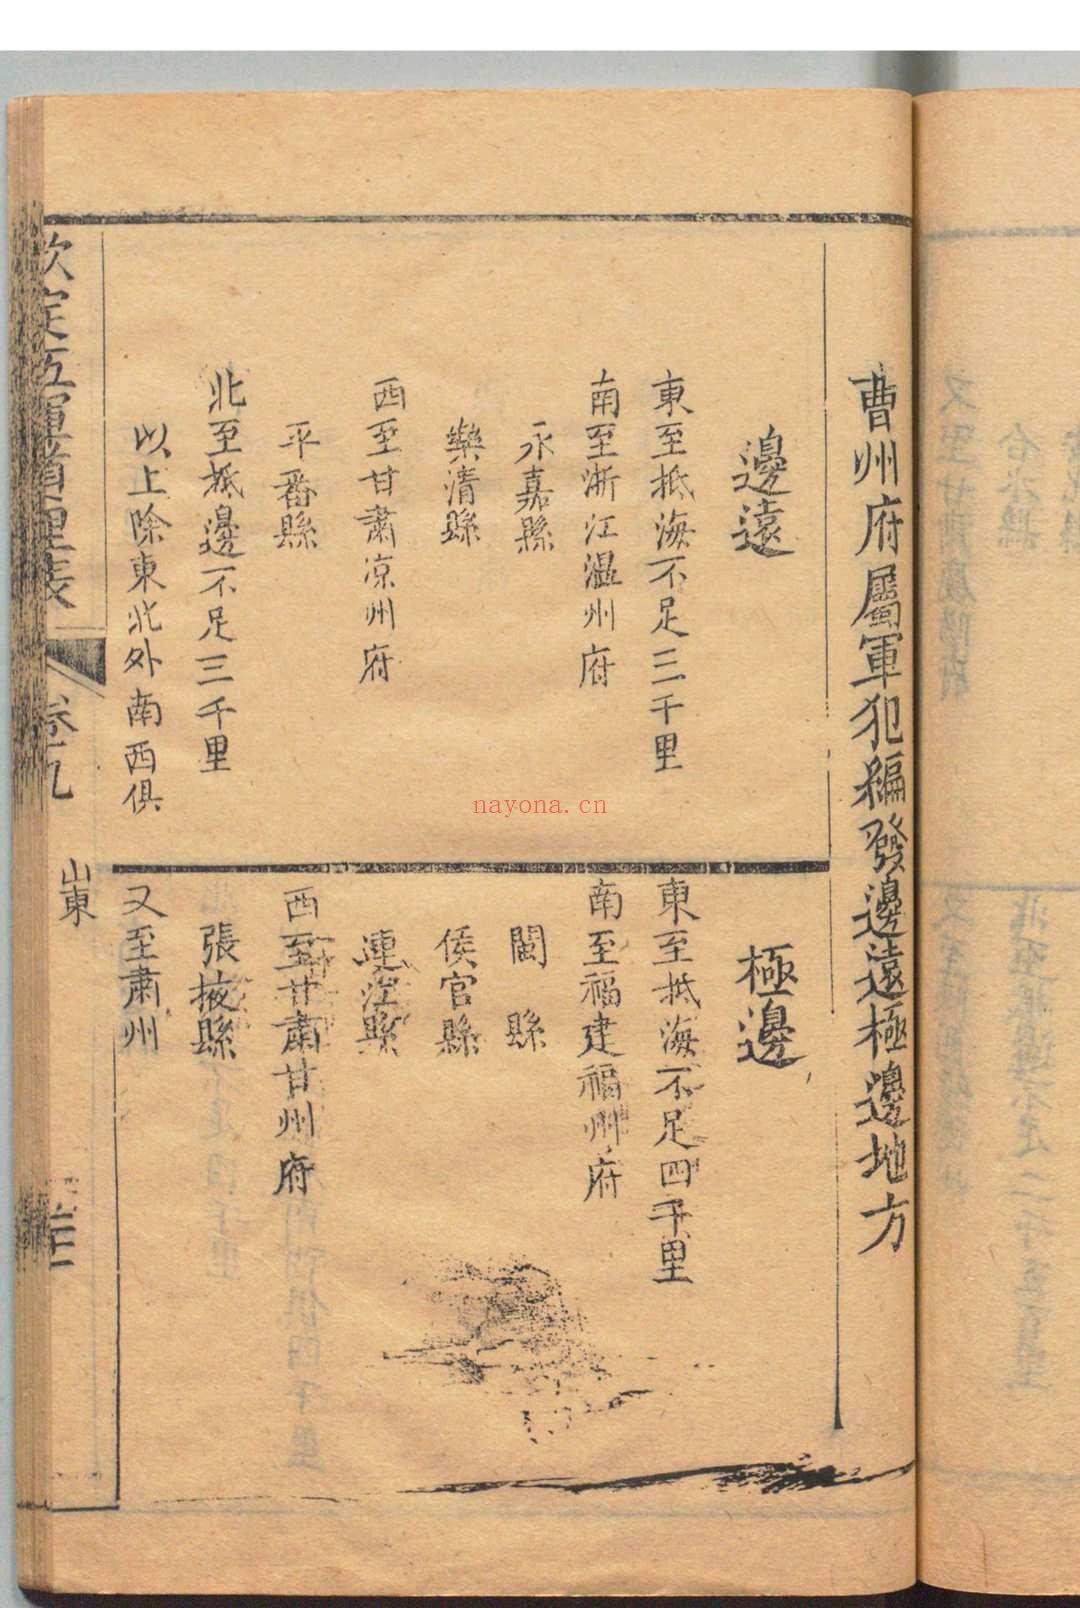 曹州府屬軍犯編發邊遠極邊地方
邊遠
東至抵海不足三千里
南至浙江溫州府
永嘉縣
樂清縣
西至甘肅凉州府
平番縣
北至抵邊不足三千里
以上除東北外南西俱
極邊
東至抵海不足四千里
南至福建福州府
閩縣
侯官縣
連江縣
西至甘肅甘州府
張掖縣
又至肅州
欽定五軍道里表
卷九
山東
nayona.cn